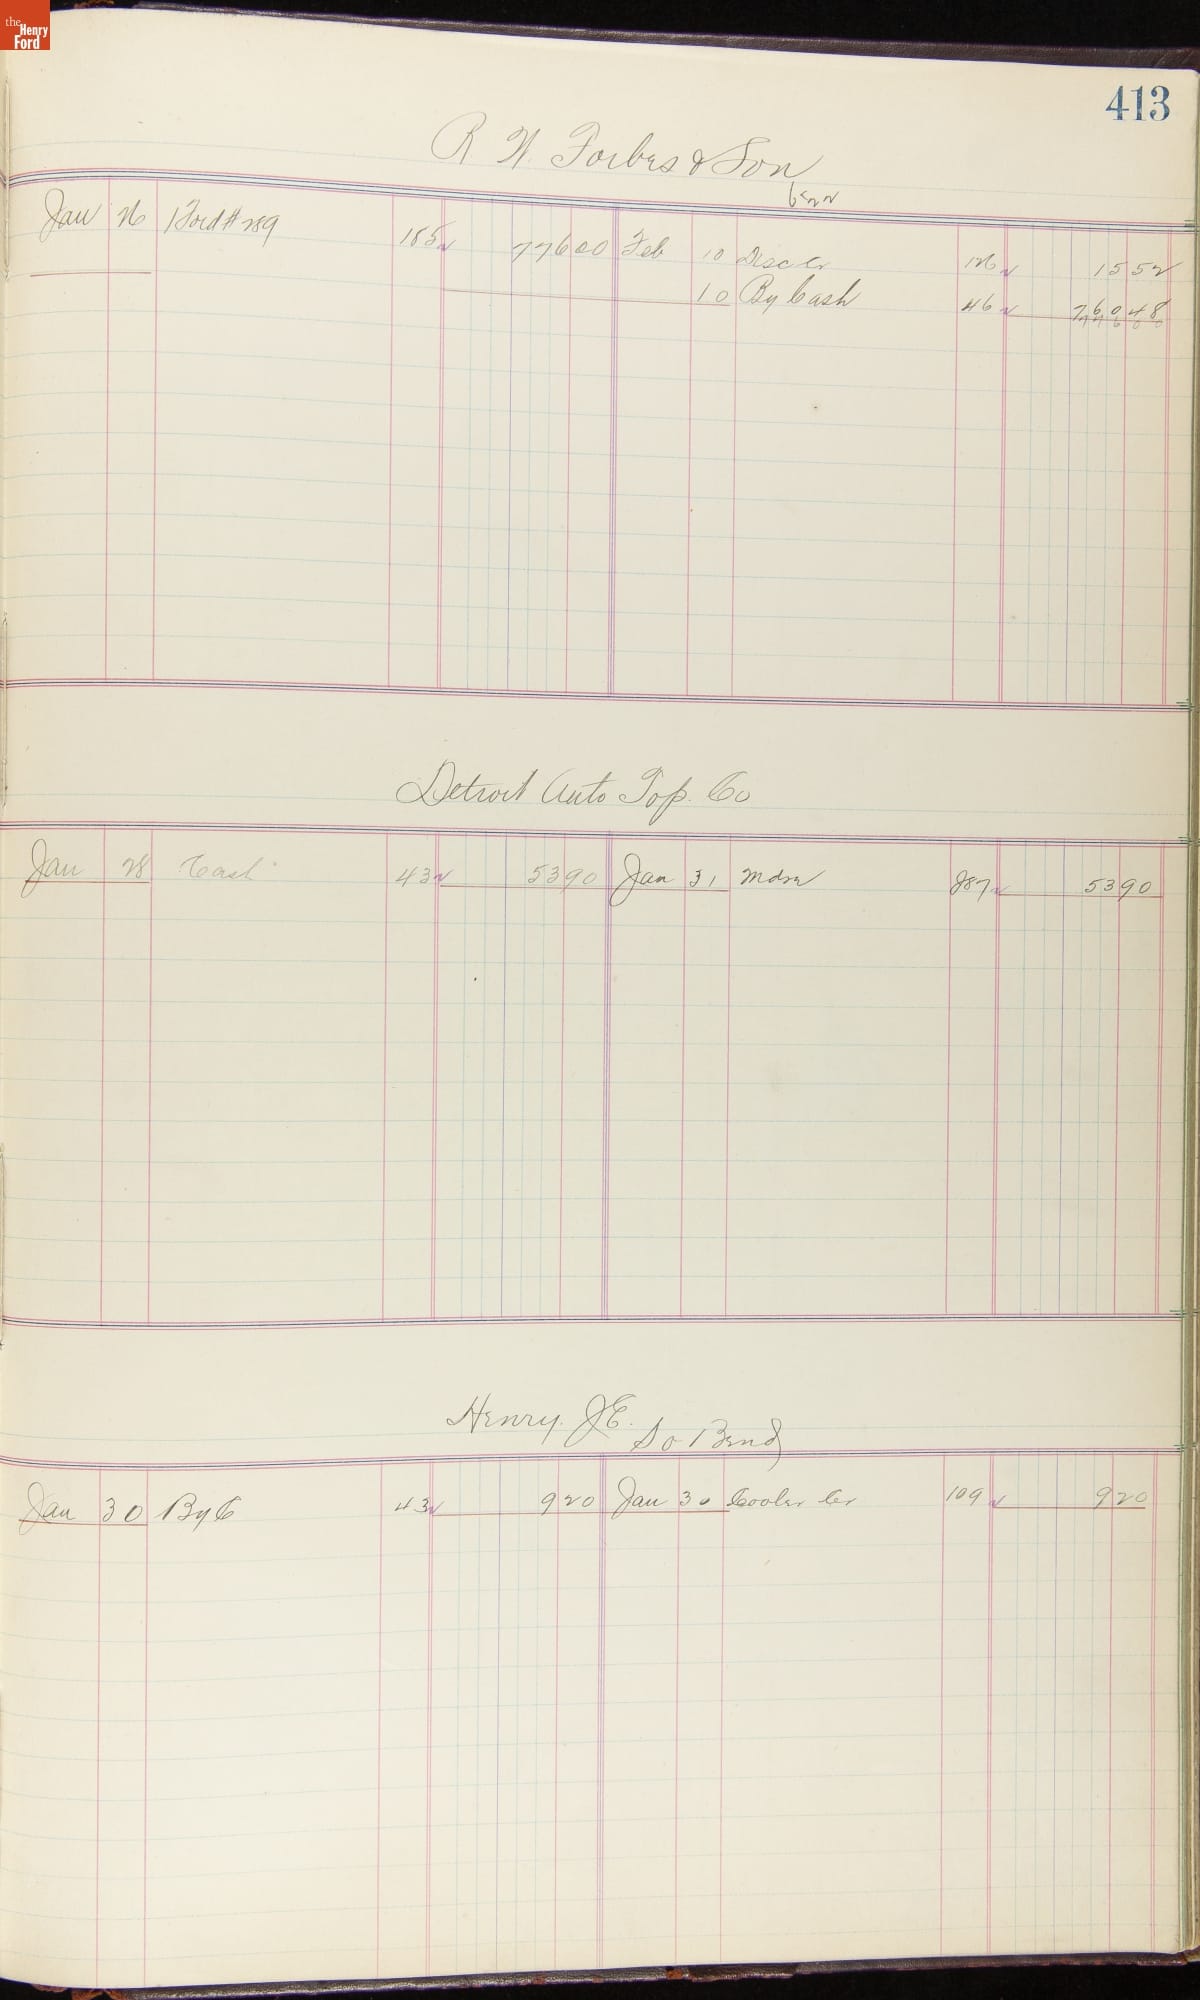 the Henry Ford
413
R W. Forbes & Son
Jan 26 1 Ford # 289 185 776 00 Feb 10 Disc Cr 126 15 52
10 By Cash 46 760 48
776 00
Detroit Auto Top. Co
Jan 28 Cash 43 53 90 Jan 31 Mdse J87 53 90
Henry. J E.
So Bend
Jan 30 By C 43 9 20 Jan 30 Cooler Cr 109 9 20